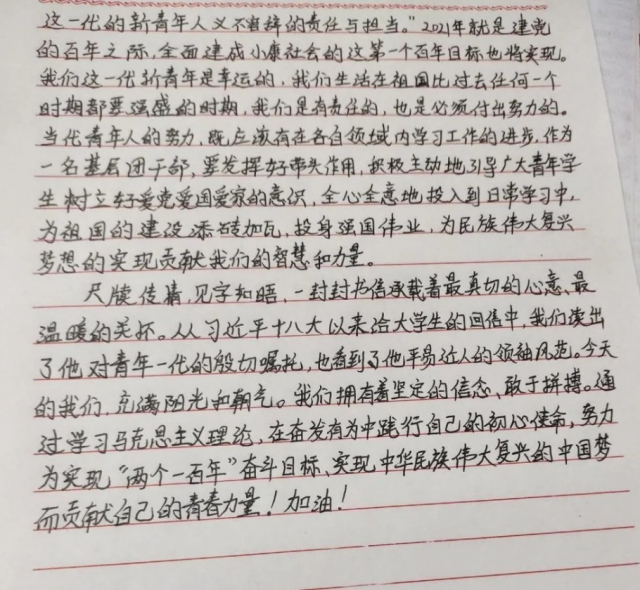 这一代的新青年人义不容辞的责任与担当。"2021年就是建党
的百年之际,全面建成小康社会的这第一个百年目标也将实现。
我们这一代新青年是幸运的,我们生活在祖国比过去任何一个
时期都要强盛的时期,我们是有责任的,也是必须付出努力的。
当代青年人的努力,既应该有在各自领域内学习工作的进步,作为
一名基层团干部,要发挥好带头作用,积极主动地引导广大青年学
生树立好爱党爱国爱家的意识,全心全意地投入到日常学习中,
为祖国的建设添砖加瓦,投身强国伟业,为民族伟大复兴
梦想的实现贡献我们的智慧和力量。
尺牍传情,见字如晤,一封封书信承载着最真切的心意、最
温暖的关怀。从从习近平十八大以来给大学生的回信中,我们读出
了他对青年一代的殷切嘱托,也看到了他平易近人的领袖风范。今天
的我们,充满阳光和朝气。我们拥有着坚定的信念、敢于拼搏。通
过学习马克思主义理论,在奋发有为中践行自己的初心使命,努力
为实现"两个一百年"奋斗目标、实现中华民族伟大复兴的中国梦
而贡献自己的青春力量!加油!